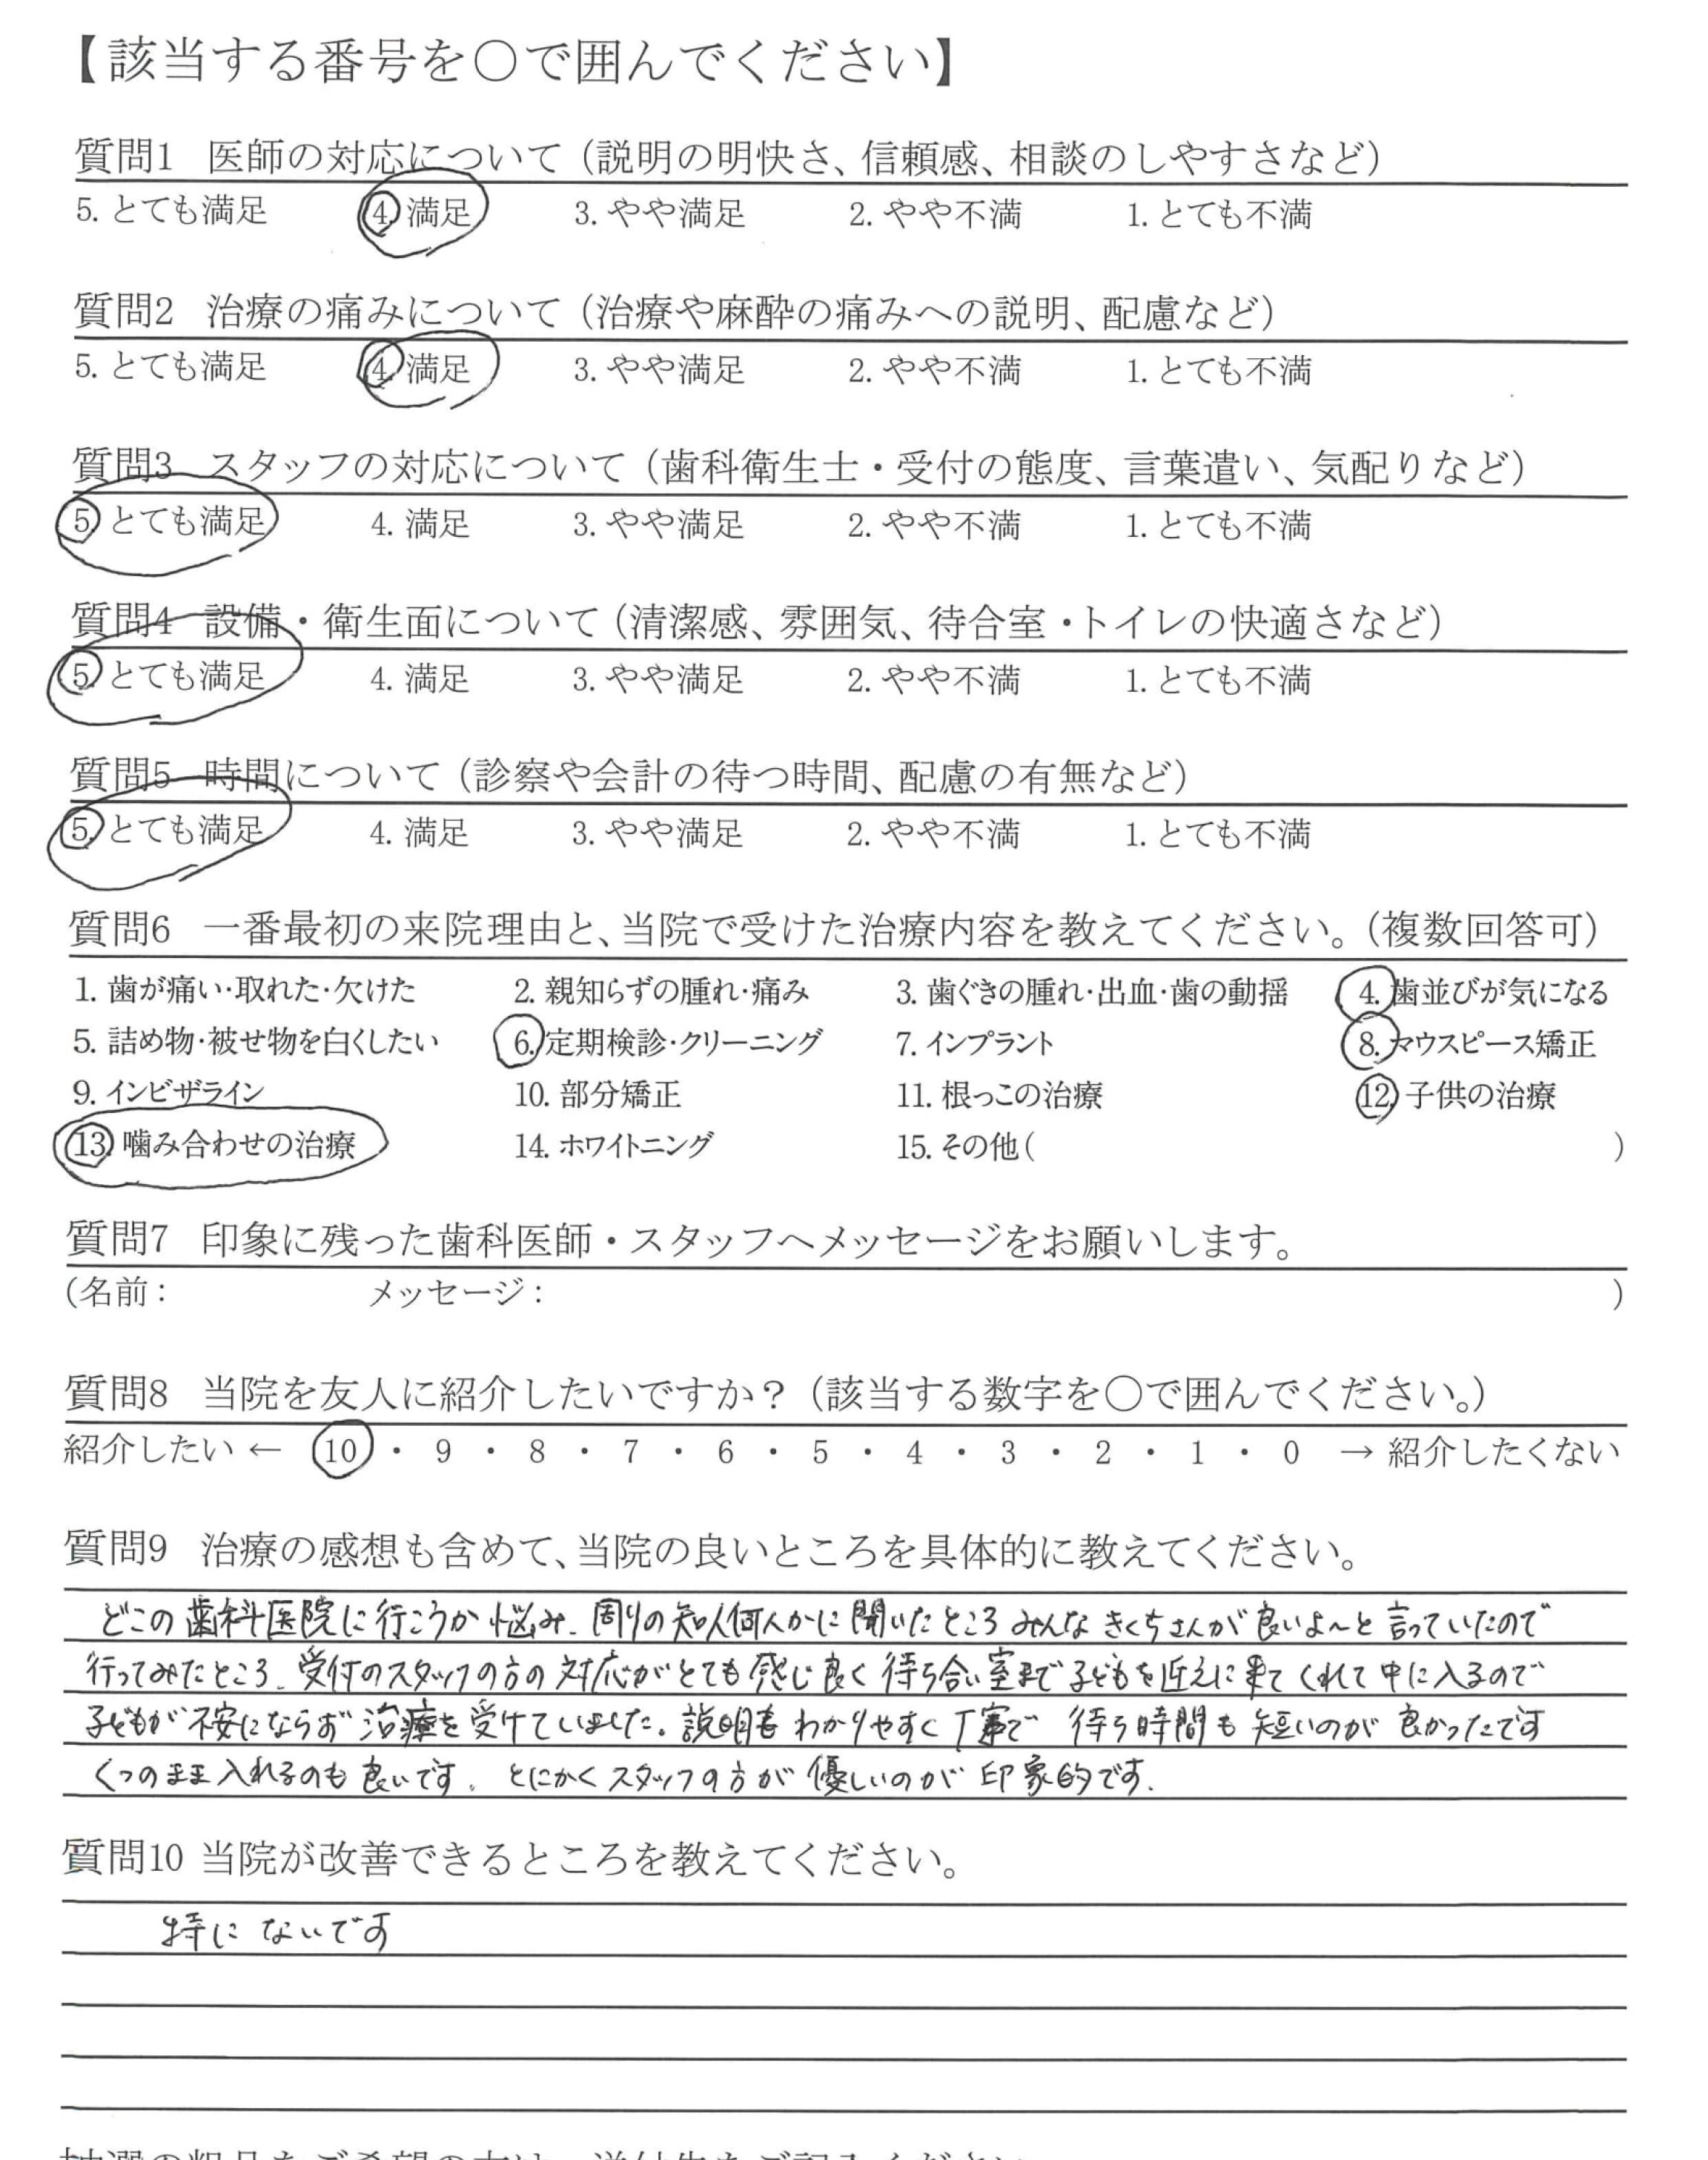 【該当する番号を〇で囲んでください】
質問1 医師の対応について（説明の明快さ、信頼感、相談のしやすさなど）
5. とても満足 4. 満足 3. やや満足 2. やや不満 1. とても不満
質問2 治療の痛みについて（治療や麻酔の痛みへの説明、配慮など）
5. とても満足 4. 満足 3. やや満足 2. やや不満 1. とても不満
質問3 スタッフの対応について（歯科衛生士・受付の態度、言葉遣い、気配りなど）
5. とても満足 4. 満足 3. やや満足 2. やや不満 1. とても不満
質問4 設備・衛生面について（清潔感、雰囲気、待合室・トイレの快適さなど）
5. とても満足 4. 満足 3. やや満足 2. やや不満 1. とても不満
質問5 時間について（診察や会計の待つ時間、配慮の有無など）
5. とても満足 4. 満足 3. やや満足 2. やや不満 1. とても不満
質問6 一番最初の来院理由と、当院で受けた治療内容を教えてください。（複数回答可）
1. 歯が痛い・取れた・欠けた 2. 親知らずの腫れ・痛み 3. 歯ぐきの腫れ・出血・歯の動揺 4. 歯並びが気になる
5. 詰め物・被せ物を白くしたい 6. 定期検診・クリーニング 7. インプラント 8. マウスピース矯正
9. インビザライン 10. 部分矯正 11. 根っこの治療 12. 子供の治療
13. 噛み合わせの治療 14. ホワイトニング 15. その他（ ）
質問7 印象に残った歯科医師・スタッフへメッセージをお願いします。
（名前： メッセージ： ）
質問8 当院を友人に紹介したいですか？（該当する数字を〇で囲んでください。）
紹介したい ← 10 ・ 9 ・ 8 ・ 7 ・ 6 ・ 5 ・ 4 ・ 3 ・ 2 ・ 1 ・ 0 → 紹介したくない
質問9 治療の感想も含めて、当院の良いところを具体的に教えてください。
どこの歯科医院に行こうか悩み、周りの知人何人かに聞いたところみんなきくちさんが良いよ〜と言っていたので
行ってみたところ、受付のスタッフの方の対応がとても感じ良く待ち合い室まで子どもを近えに来てくれて中に入るので
子どもが不安にならず治療を受けていました。説明もわかりやすく丁寧で 待つ時間も短いのが良かったです
くつのまま入れるのも良いです。とにかくスタッフの方が優しいのが印象的です。
質問10 当院が改善できるところを教えてください。
特にないです
抽選の粗品をご希望の方は、送付先をご記入ください